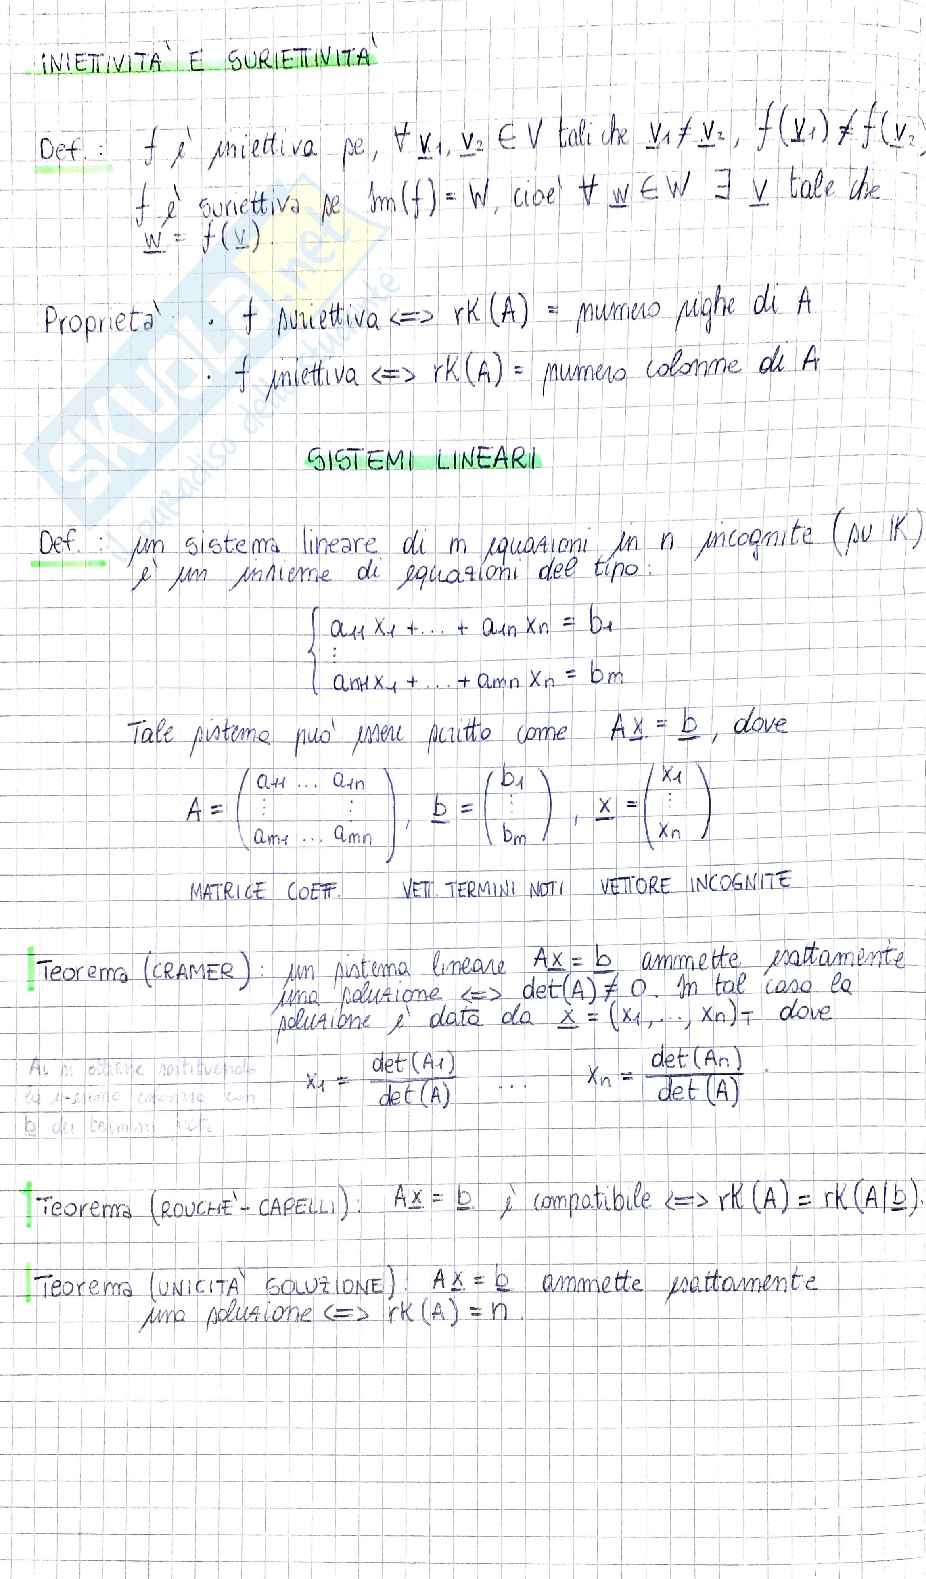 INIETTIVITA' E SURIETTIVITA'
Def.: f è iniettiva se, ∀ v1, v2 ∈ V tali che v1 ≠ v2, f(v1) ≠ f(v2)
f è suriettiva se Im(f) = W, cioè ∀ w ∈ W ∃ v tale che
w = f(v).
Proprietà · f suriettiva <=> rK(A) = numero righe di A
· f iniettiva <=> rK(A) = numero colonne di A
SKUOLA.net
il paradiso dello studente
SISTEMI LINEARI
Def.: un sistema lineare di m equazioni in n incognite (su K)
è un insieme di equazioni del tipo:
{ a11 x1 + ... + a1n xn = b1
⋮
am1 x1 + ... + amn xn = bm
Tale sistema può essere scritto come Ax = b, dove
A = (a11 ... a1n ⋮ ⋮ am1 ... amn), b = (b1 ⋮ bm), x = (x1 ⋮ xn)
MATRICE COEFF. VETT. TERMINI NOTI VETTORE INCOGNITE
Teorema (CRAMER): un sistema lineare Ax = b ammette esattamente
una soluzione <=> det(A) ≠ 0. In tal caso la
soluzione è data da x = (x1, ..., xn)T dove
Ai si ottiene sostituendo
la i-esima colonna con
b dei termini noti
x1 = det(A1) / det(A) ... xn = det(An) / det(A).
Teorema (ROUCHE'-CAPELLI): Ax = b è compatibile <=> rK(A) = rK(A|b).
Teorema (UNICITA' SOLUZIONE): Ax = b ammette esattamente
una soluzione <=> rK(A) = n.